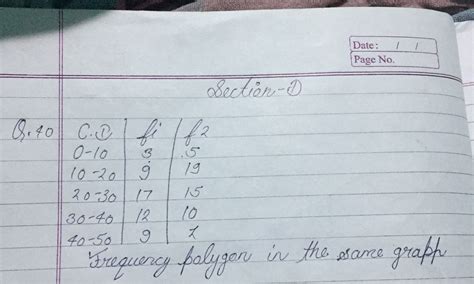 Date: / /
Page No.
Section-D
Q.40 C.I fi f2
0-10 3 5
10-20 9 19
20-30 17 15
30-40 12 10
40-50 9
Frequency polygon in the same graph